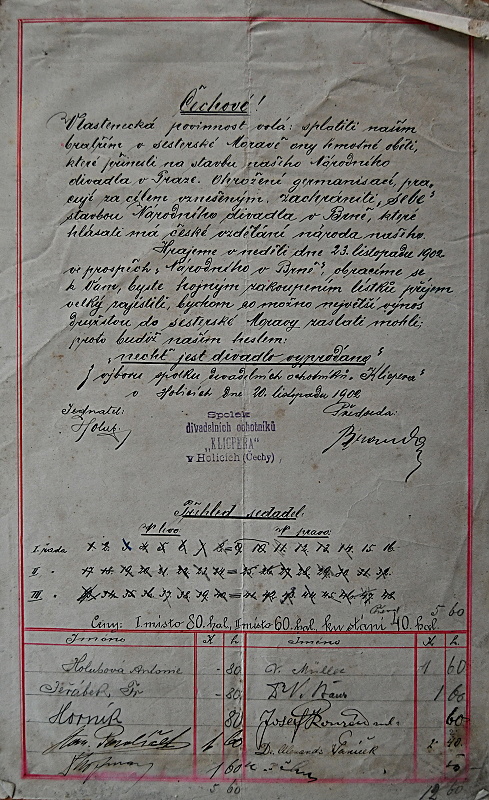 Čechové!
Vlastenecká povinnost volá: splatiti našim
bratřím v sesterské Moravě ony hmotné oběti,
které přinesli na stavbu našeho Národního
divadla v Praze. Ohroženi germanisací, pra-
cují za cílem vznešeným. Zachrániti „Sebe"
stavbou Národního divadla v Brně, které
hlásati má české vzdělání národa našeho.
Hrajeme v neděli dne 23. listopadu 1902
ve prospěch „Národního v Brně", obracíme se
k Vám, byste hojným zakoupením lístků příjem
velký zajistili, bychom co možno největší výnos
družstvu do sesterské Moravy zaslati mohli;
proto budiž naším heslem:
„nechť jest divadlo vyprodáno"
Z výboru spolku divadelních ochotníků „Klicpera"
v Holicích dne 20. listopadu 1902
Jednatel: Předseda:
Holub.
Spolek
divadelních ochotníků
„KLICPERA"
v Holicích (Čechy)
Přehled sedadel.
V levo. V pravo.
I. řada 1 2 3 4 5 6 7 8 = 9 10. 11. 12. 13. 14. 15. 16.
II „ 17 18 19 20 21 22 23 24 = 25 26 27 28 29 30 31 32.
III „ 33 34 35 36 37 38 39 40 = 41 42 43 44 45 46 47 48
5 60
Ceny: I. místo 80 hal, II místo 60 hal, ku stání 40 hal
Jméno K h Jméno K h
Holubová Antonie - 80 V. Müller 1 60
Jeřábek Fr - 80 Dr V. 1 60
Horník 80 Josef 60
1 60 Dr. Vaníček 2 40
1 60
5 60 12 60